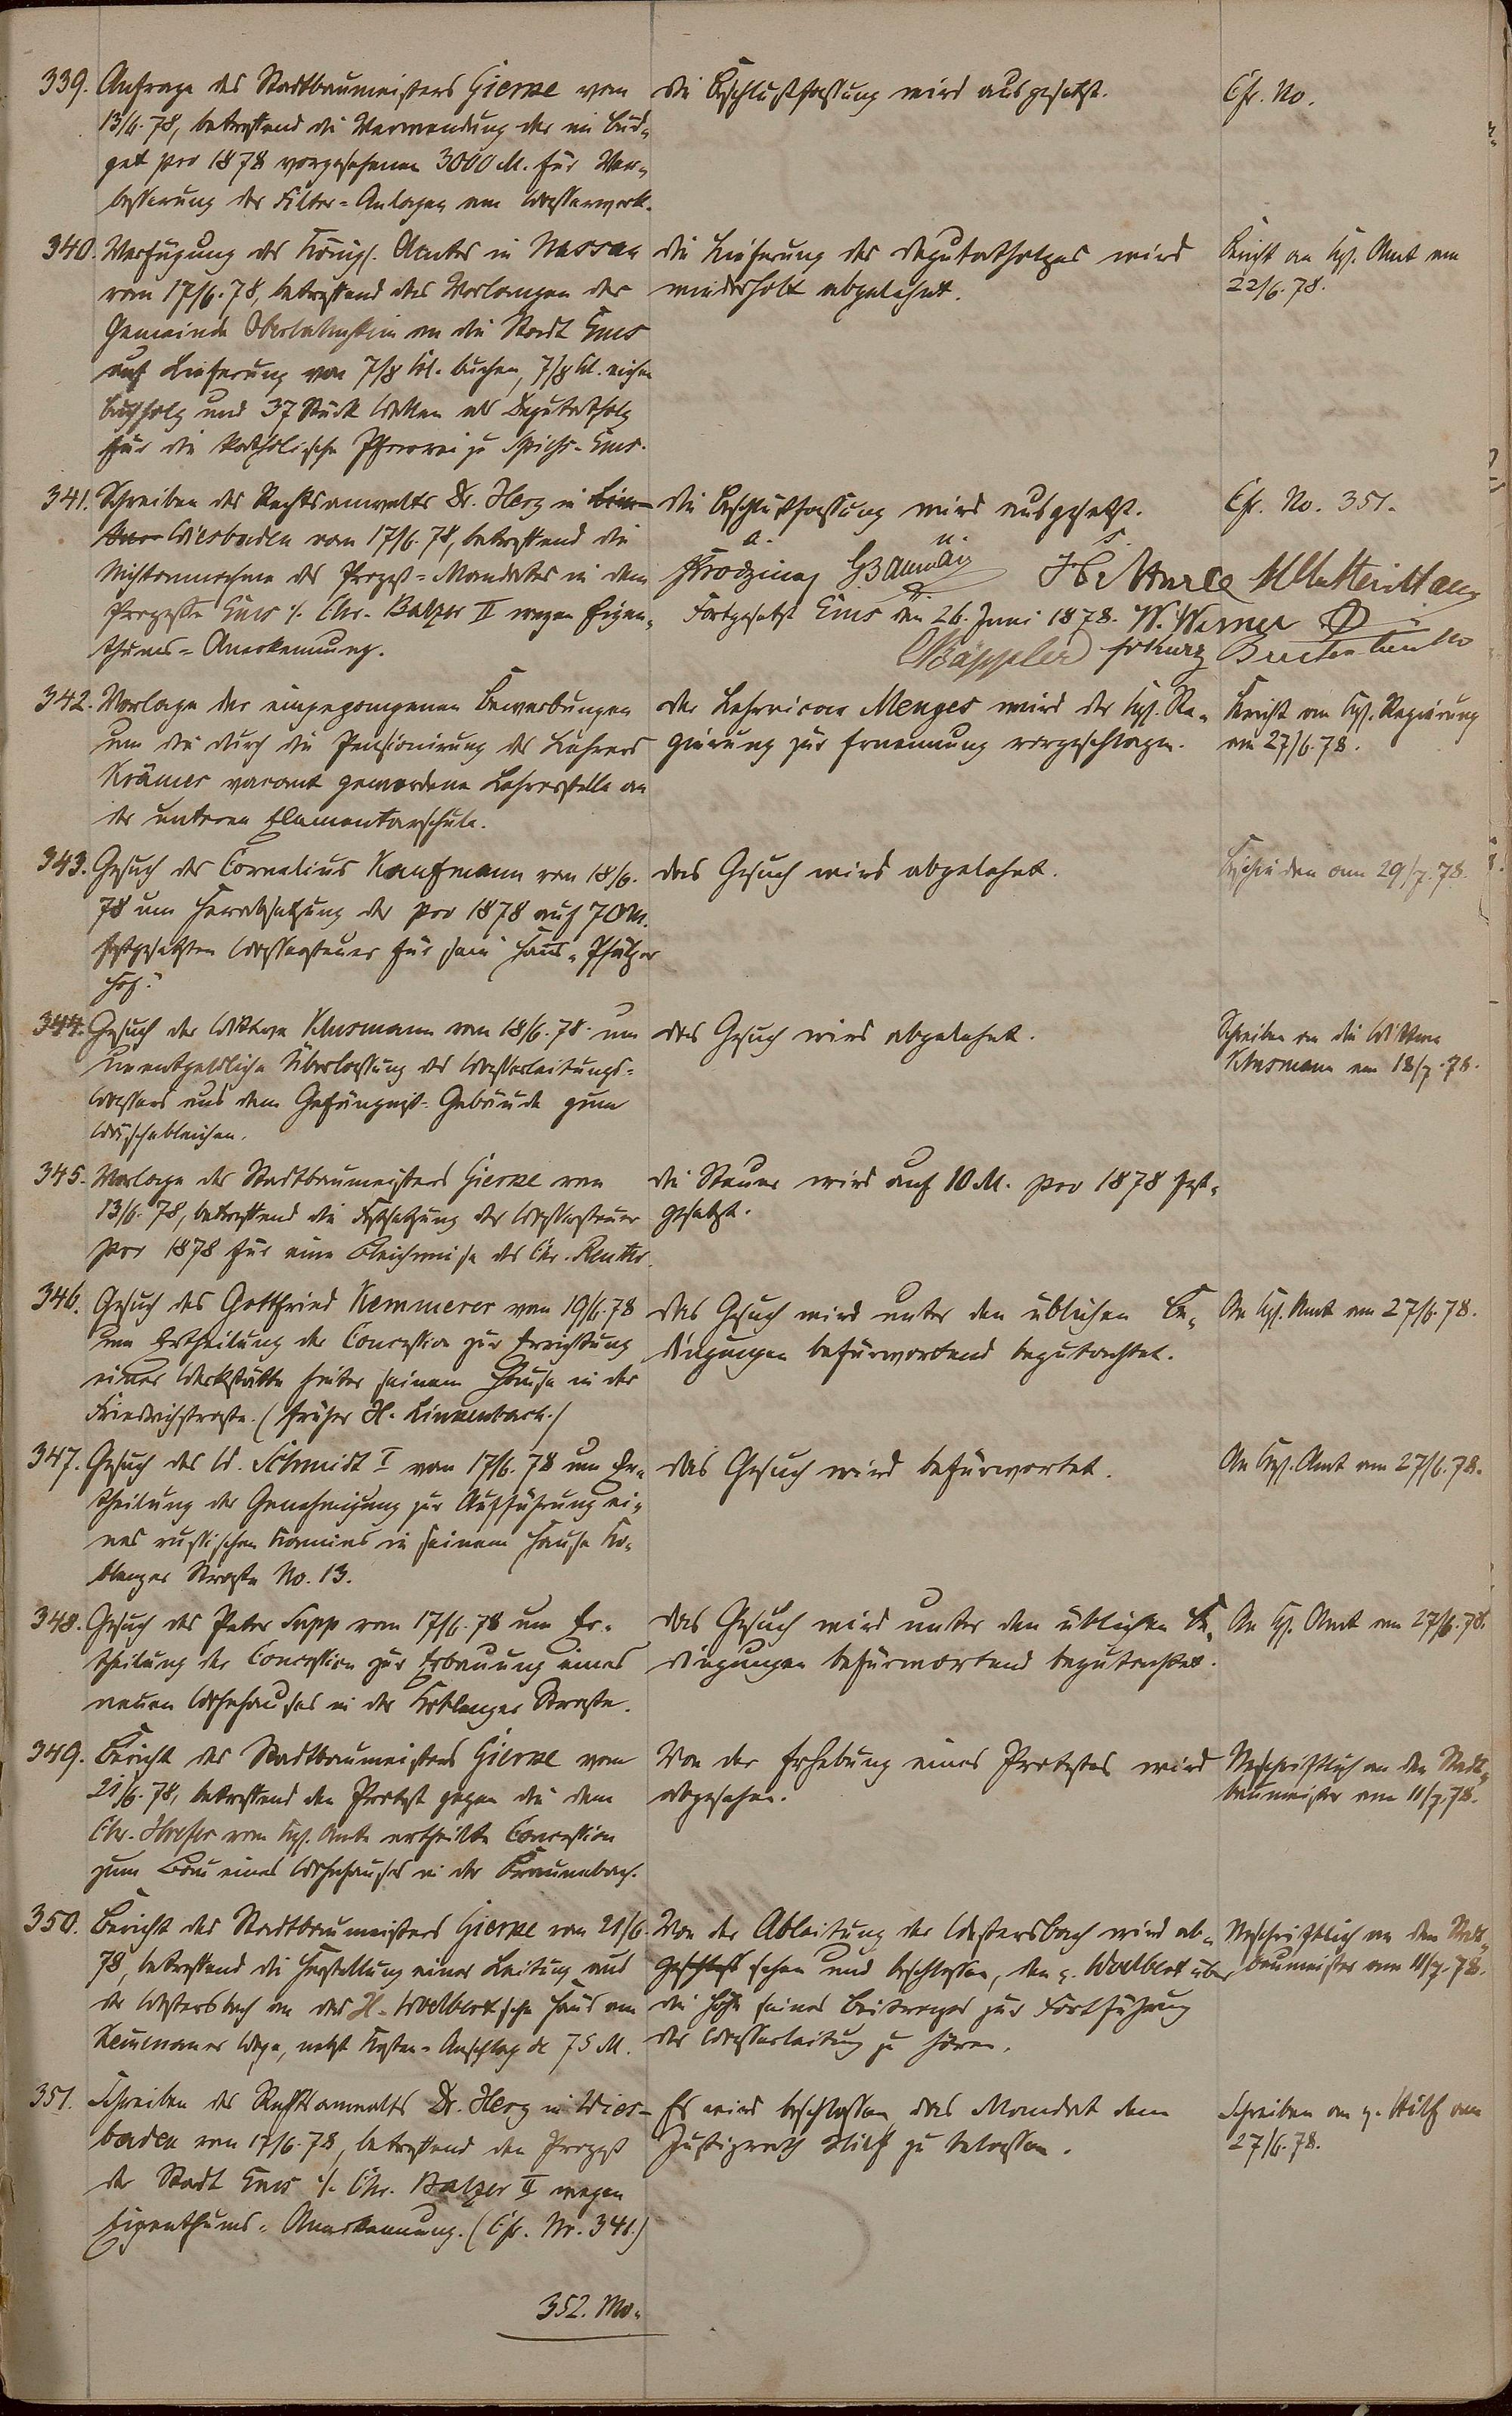 339. Anfrage des Stadtbaumeisters Gierke vom
13/6. 78, betreffend die Verwendung der im Bud-
get pro 1878 vorgesehenen 3000 M. für Ver-
besserung der Filter-Anlagen am Wasserwerk.
die Beschlußfassung wird ausgesetzt.
Cfr. No.
340. Verfügung des Königl. Amtes in Nassau
vom 17/6. 78, betreffend das Verlangen der
Gemeinde Oberlahnstein an die Stadt Ems
auf Lieferung von 7/8 Kl. buchen, 7/8 Kl. eichen
holz und 37 Stück Wellen als Deputatholz
für die katholische Pfarrei zu Ems.
die Lieferung des Deputatholzes wird
wiederholt abgelehnt.
Bericht an Kgl. Amt am
22/6. 78.
341. Schreiben des Rechtsanwalts Dr. Herz in
Wiesbaden vom 17/6. 78, betreffend die
Nichtannahme des Prozeß-Mandates in dem
Prozesse Ems ./. Chr. Balzer II wegen Eigen-
thums-Anerkennung.
die Beschlußfassung wird ausgesetzt.
a. u. s.
Cfr. No. 351.
Fortgesetzt Ems den 26. Juni 1878. W. Werner
Bäppler
342. Vorlage der eingegangenen Bewerbungen
um die durch die Pensionirung des Lehrers
Krämer vacant gewordene Lehrerstelle an
der unteren Elementarschule.
der Lehrvicar Menges wird der Kgl. Re-
gierung zur Ernennung vorgeschlagen.
Bericht an Kgl. Regierung
am 27/6. 78.
343. Gesuch des Cornelius Kaufmann vom 18/6.
78 um Herabsetzung der pro 1878 auf 70 M.
festgesetzten Wassersteuer für sein Haus „Pfälzer
Hof."
das Gesuch wird abgelehnt.
Beschieden am 29/7. 78.
344. Gesuch der Wittwe Klusmann vom 18/6. 78. um
unentgeldliche Überlassung des Wasserleitungs-
Wassers aus dem Gefängniß-Gebäude zum
Wäschebleichen.
das Gesuch wird abgelehnt.
Schreiben an die Wittwe
Klusmann am 18/7. 78.
345. Vorlage des Stadtbaumeisters Gierke vom
13/6. 78, betreffend die Festsetzung der Wassersteuer
pro 1878 für eine Bleichwiese des Chr. Reuter.
die Steuer wird auf 10 M. pro 1878 fest-
gesetzt.
346. Gesuch des Gottfried Kemmerer vom 19/6. 78
um Ertheilung der Concession zur Errichtung
einer Werkstätte hinter seinem Hause in der
Friedrichstraße. (früher H. Linkenbach.)
das Gesuch wird unter den üblichen Be-
dingungen befürwortend begutachtet.
An Kgl. Amt am 27/6. 78.
347. Gesuch des W. Schmidt I vom 17/6. 78 um Er-
theilung der Genehmigung zur Aufführung ei-
nes russischen Kamines in seinem Hause Ko-
blenzer Straße No. 13.
das Gesuch wird befürwortet.
An Kgl. Amt am 27/6. 78.
348. Gesuch des Peter Sapp vom 17/6. 78 um Er-
theilung der Concession zur Erbauung eines
neuen Wohnhauses in der Koblenzer Straße.
das Gesuch wird unter den üblichen Be-
dingungen befürwortend begutachtet.
An Kgl. Amt am 27/6. 78.
349. Bericht des Stadtbaumeisters Gierke vom
21/6. 78, betreffend den Protest gegen die dem
Chr. vom Kgl. Amte ertheilte Concession
zum Bau eines Wohnhauses in der Braunebach.
Von der Erhebung eines Protestes wird
abgesehen.
Abschriftlich an den Stadt-
baumeister am 11/7. 78.
350. Bericht des Stadtbaumeisters Gierke vom 21/6.
78, betreffend die Herstellung einer Leitung aus
der Westersbach an das H. Woelbert'sche Haus am
Kemmenauer Wege, nebst Kosten-Anschlag de 75 M.
Von der Ableitung der Westersbach wird ab-
gesehen und beschlossen, den p. Woelbert über
die Höhe seines Beitrages zur Fortführung
der Wasserleitung zu hören.
Abschriftlich an den Stadt-
baumeister am 11/7. 78.
351. Schreiben des Rechtsanwalts Dr. Herz in Wies-
baden vom 17/6. 78, betreffend den Prozeß
der Stadt Ems ./. Chr. Balzer II wegen
Eigenthums-Anerkennung. (Cfr. Nr. 341.)
Es wird beschlossen, das Mandat dem
Justizrath Hilf zu belassen.
Schreiben an p. Hilf am
27/6. 78.
352. Mo-